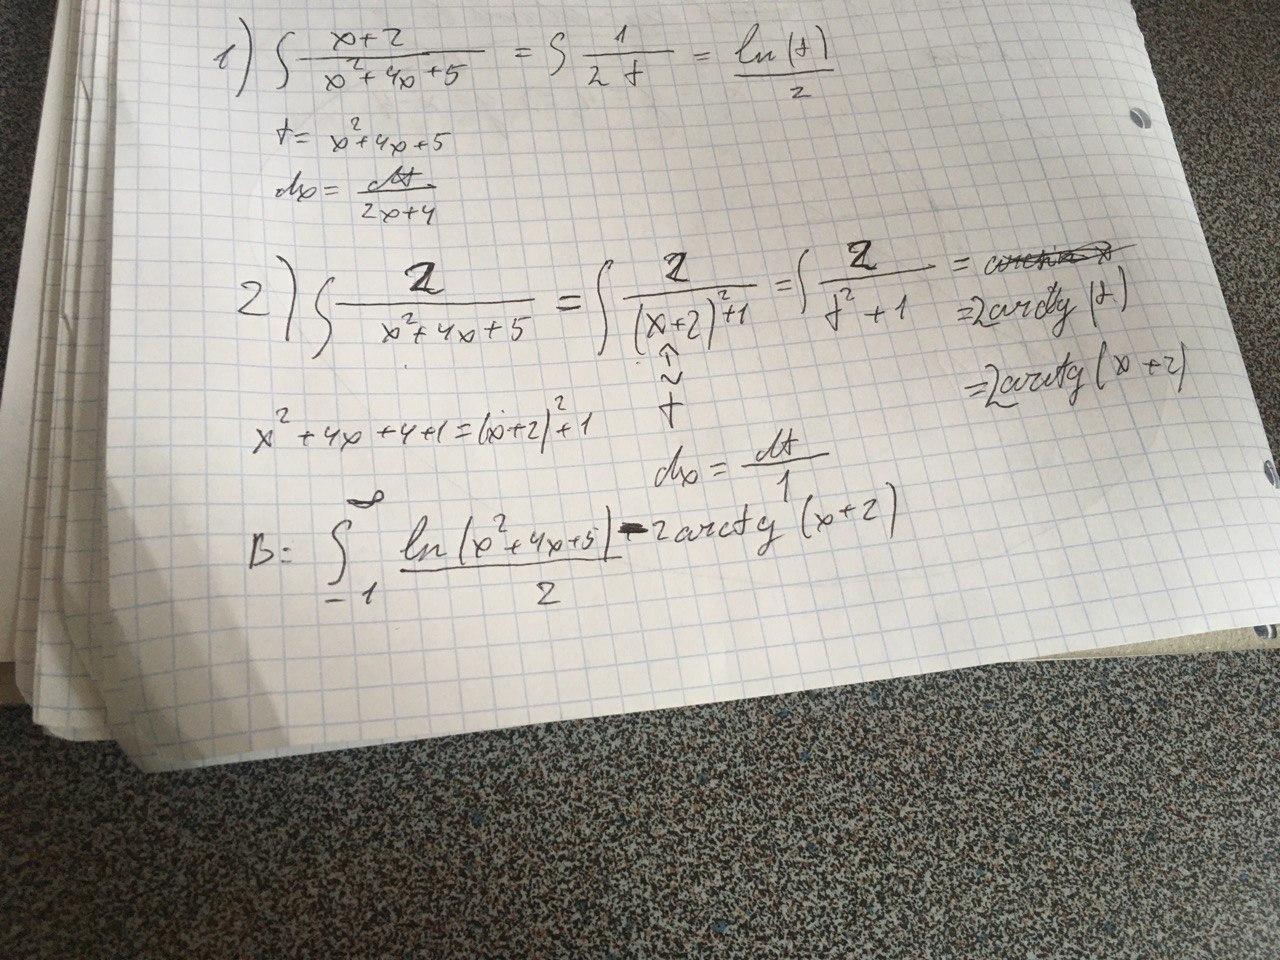 1) ∫ (x+2)/(x²+4x+5) = ∫ 1/(2t) = ln(t)/2
t = x²+4x+5
dx = dt/(2x+4)
2) ∫ 2/(x²+4x+5) = ∫ 2/((x+2)²+1) = ∫ 2/(t²+1) =
=2arctg(t)
=2arctg(x+2)
x²+4x+4+1=(x+2)²+1
t
dx = dt/1
B= ∫₋₁^∞ ln(x²+4x+5)/2 - 2arctg(x+2)